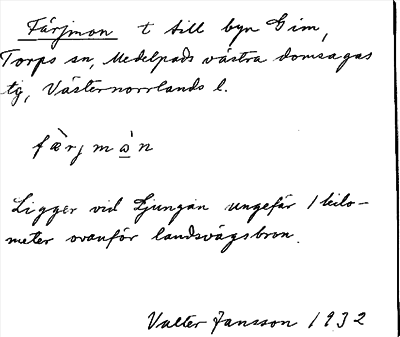 Färjmon t till byn Gim,
Torps sn, Medelpads västra domsagas
tg, Västernorrlands l.
fæ̀rjmà̲n
Ligger vid Ljungan ungefär 1 kilo-
meter ovanför landsvägsbron.
Valter Jansson 1932